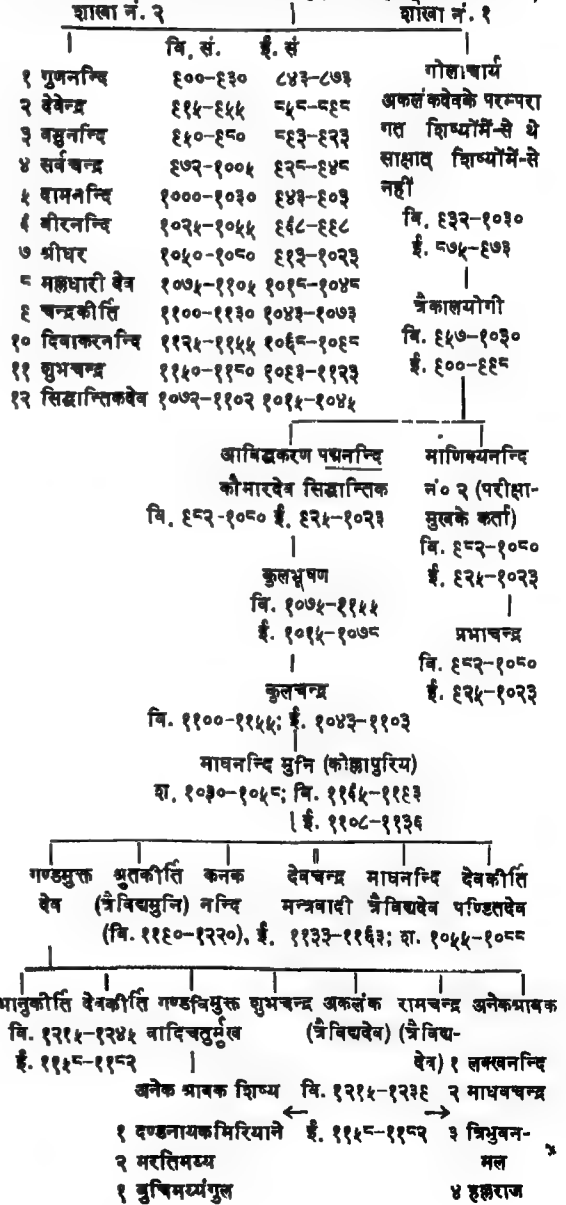 शाखा नं. २
वि. सं. ई. सं
१ गुणनन्दि ९००-९३० ८४३-८७३
२ देवेन्द्र ९१५-९५५ ८५८-८९८
३ वसुनन्दि ९५०-९८० ८९३-९२३
४ सर्वचन्द्र ९७२-१००५ ९२८-९४८
५ दामनन्दि १०००-१०३० ९४३-९०३
६ वीरनन्दि १०२५-१०५५ ९६८-९९८
७ श्रीधर १०५०-१०८० ९१३-१०२३
८ मलधारी देव १०७५-११०५ १०१८-१०४८
९ चन्द्रकीर्ति ११००-११३० १०४३-१०७३
१० दिवाकरनन्दि ११२५-११५५ १०६८-१०९८
११ शुभचन्द्र ११५०-११८० १०९३-११२३
१२ सिद्धान्तिकदेव १०७२-११०२ १०१५-१०४५
शाखा नं. १
गोलाचार्य
अकलंकदेवके परम्परा
गत शिष्योंमें-से थे
साक्षात् शिष्योंमें-से
नहीं
वि. ९३२-१०३०
ई. ८७५-९७३
त्रैकालयोगी
वि. ९५७-१०३०
ई. ९००-९९८
आविद्धकरण पद्मनन्दि
कौमारदेव सिद्धान्तिक
वि. ९८२-१०८० ई. ९२५-१०२३
कुलभूषण
वि. १०७५-११५५
ई. १०१५-१०७८
कुलचन्द्र
वि. ११००-११५५; ई. १०४३-११०३
माणिक्यनन्दि
नं० २ (परीक्षा-
मुखके कर्ता)
वि. ९८२-१०८०
ई. ९२५-१०२३
प्रभाचन्द्र
वि. ९८२-१०८०
ई. ९२५-१०२३
माघनन्दि मुनि (कोल्लापुरिय)
श. १०३०-१०५८; वि. ११६५-११९३
ई. ११०८-११३६
गण्डमुक्त श्रुतकीर्ति कनक देवचन्द्र माघनन्दि देवकीर्ति
देव (त्रैविद्यमुनि) नन्दि मन्त्रवादी त्रैविद्यदेव पण्डितदेव
(वि. ११९०-१२२०), ई. ११३३-११६३; श. १०५५-१०८८
भानुकीर्ति देवकीर्ति गण्डविमुक्त शुभचन्द्र अकलंक रामचन्द्र अनेकश्रावक
वि. १२१५-१२४५ वादिचतुर्मुख (त्रैविद्यदेव) (त्रैविद्य-
ई. ११५८-११८२ देव) १ लक्खनन्दि
अनेक श्रावक शिष्य वि. १२१५-१२३९ २ माधवचन्द्र
१ दण्डनायकमिरियाने ई. ११५८-११८२ ३ त्रिभुवन-
२ मरतिमय्य मल
१ बुचिमय्यंगुल ४ हुल्लराज